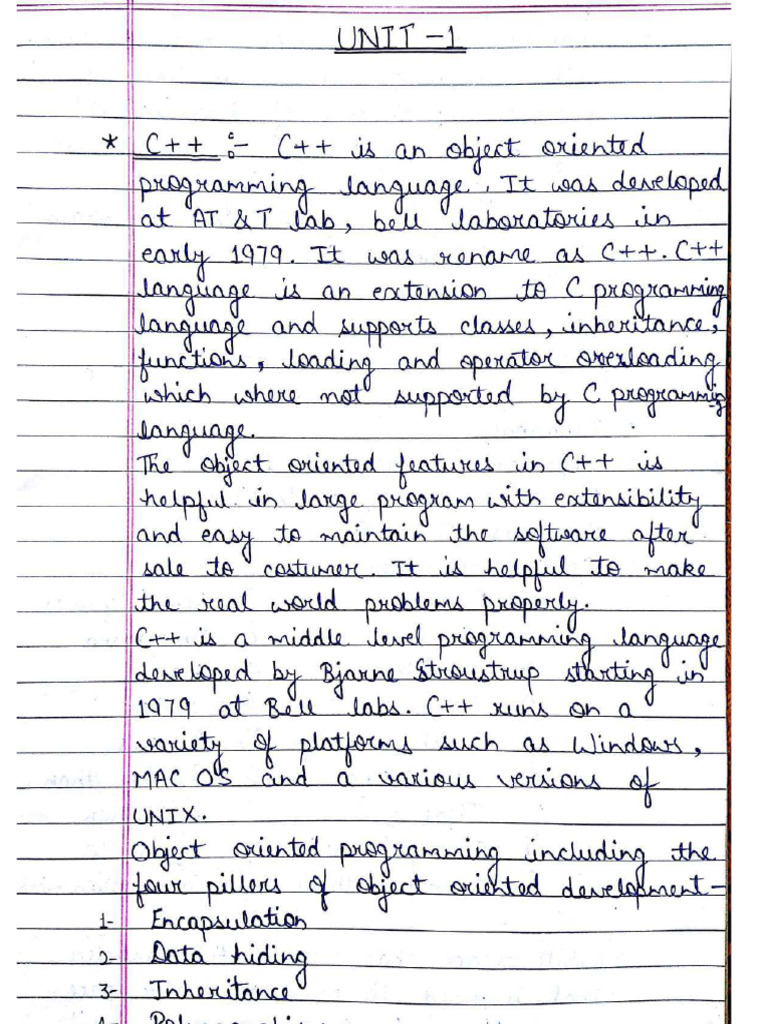 UNIT - 1
* C++ :- C++ is an object oriented
programming language. It was developed
at AT & T lab, bell laboratories in
early 1979. It was rename as C++. C++
language is an extension to C programming
language and supports classes, inheritance,
functions, loading and operator overloading
which where not supported by C programming
language.
The object oriented features in C++ is
helpful in large program with extensibility
and easy to maintain the software after
sale to costumer. It is helpful to make
the real world problems properly.
C++ is a middle level programming language
developed by Bjarne Stroustrup starting in
1979 at Bell labs. C++ runs on a
variety of platforms such as Windows,
MAC OS and a various versions of
UNIX.
Object oriented programming including the
four pillers of object oriented development-
1- Encapsulation
2- Data hiding
3- Inheritance